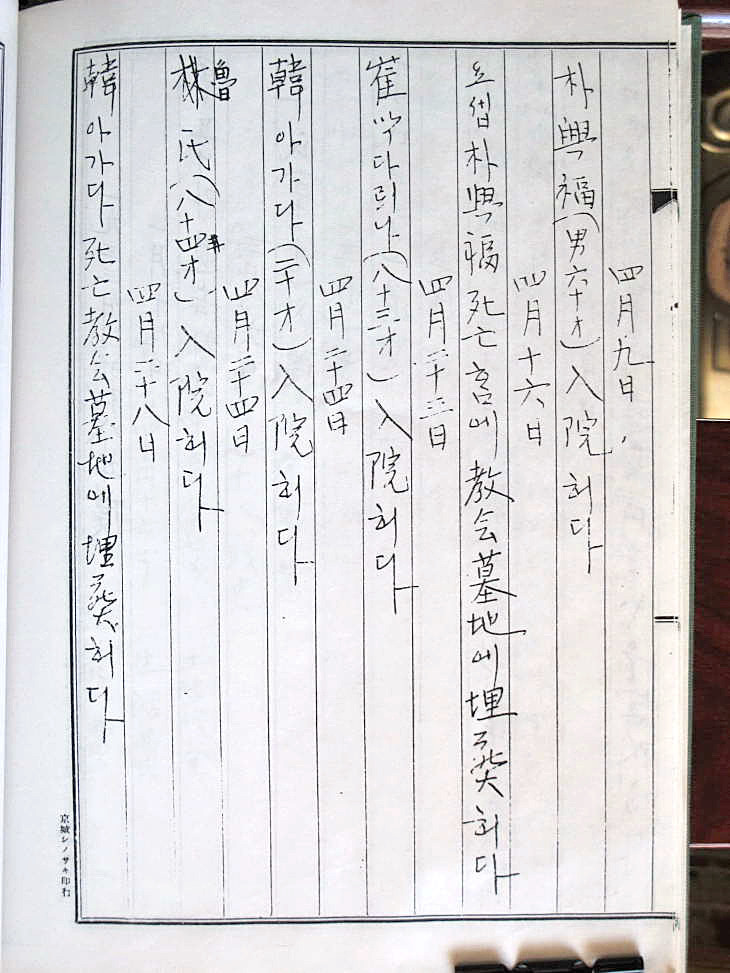 四月九日,
朴興福(男六十才)入院허다
四月十六日
요셉朴興福死亡 教会墓地에埋葬허다
四月二十三日
崔막다릐나(八十三才)入院허다
四月二十四日
韓아가다(二十才)入院허다
四月二十四日
魯氏(八十四才)入院허다
四月二十八日
韓아가다死亡教会墓地에埋葬허다
京城シノサキ印行